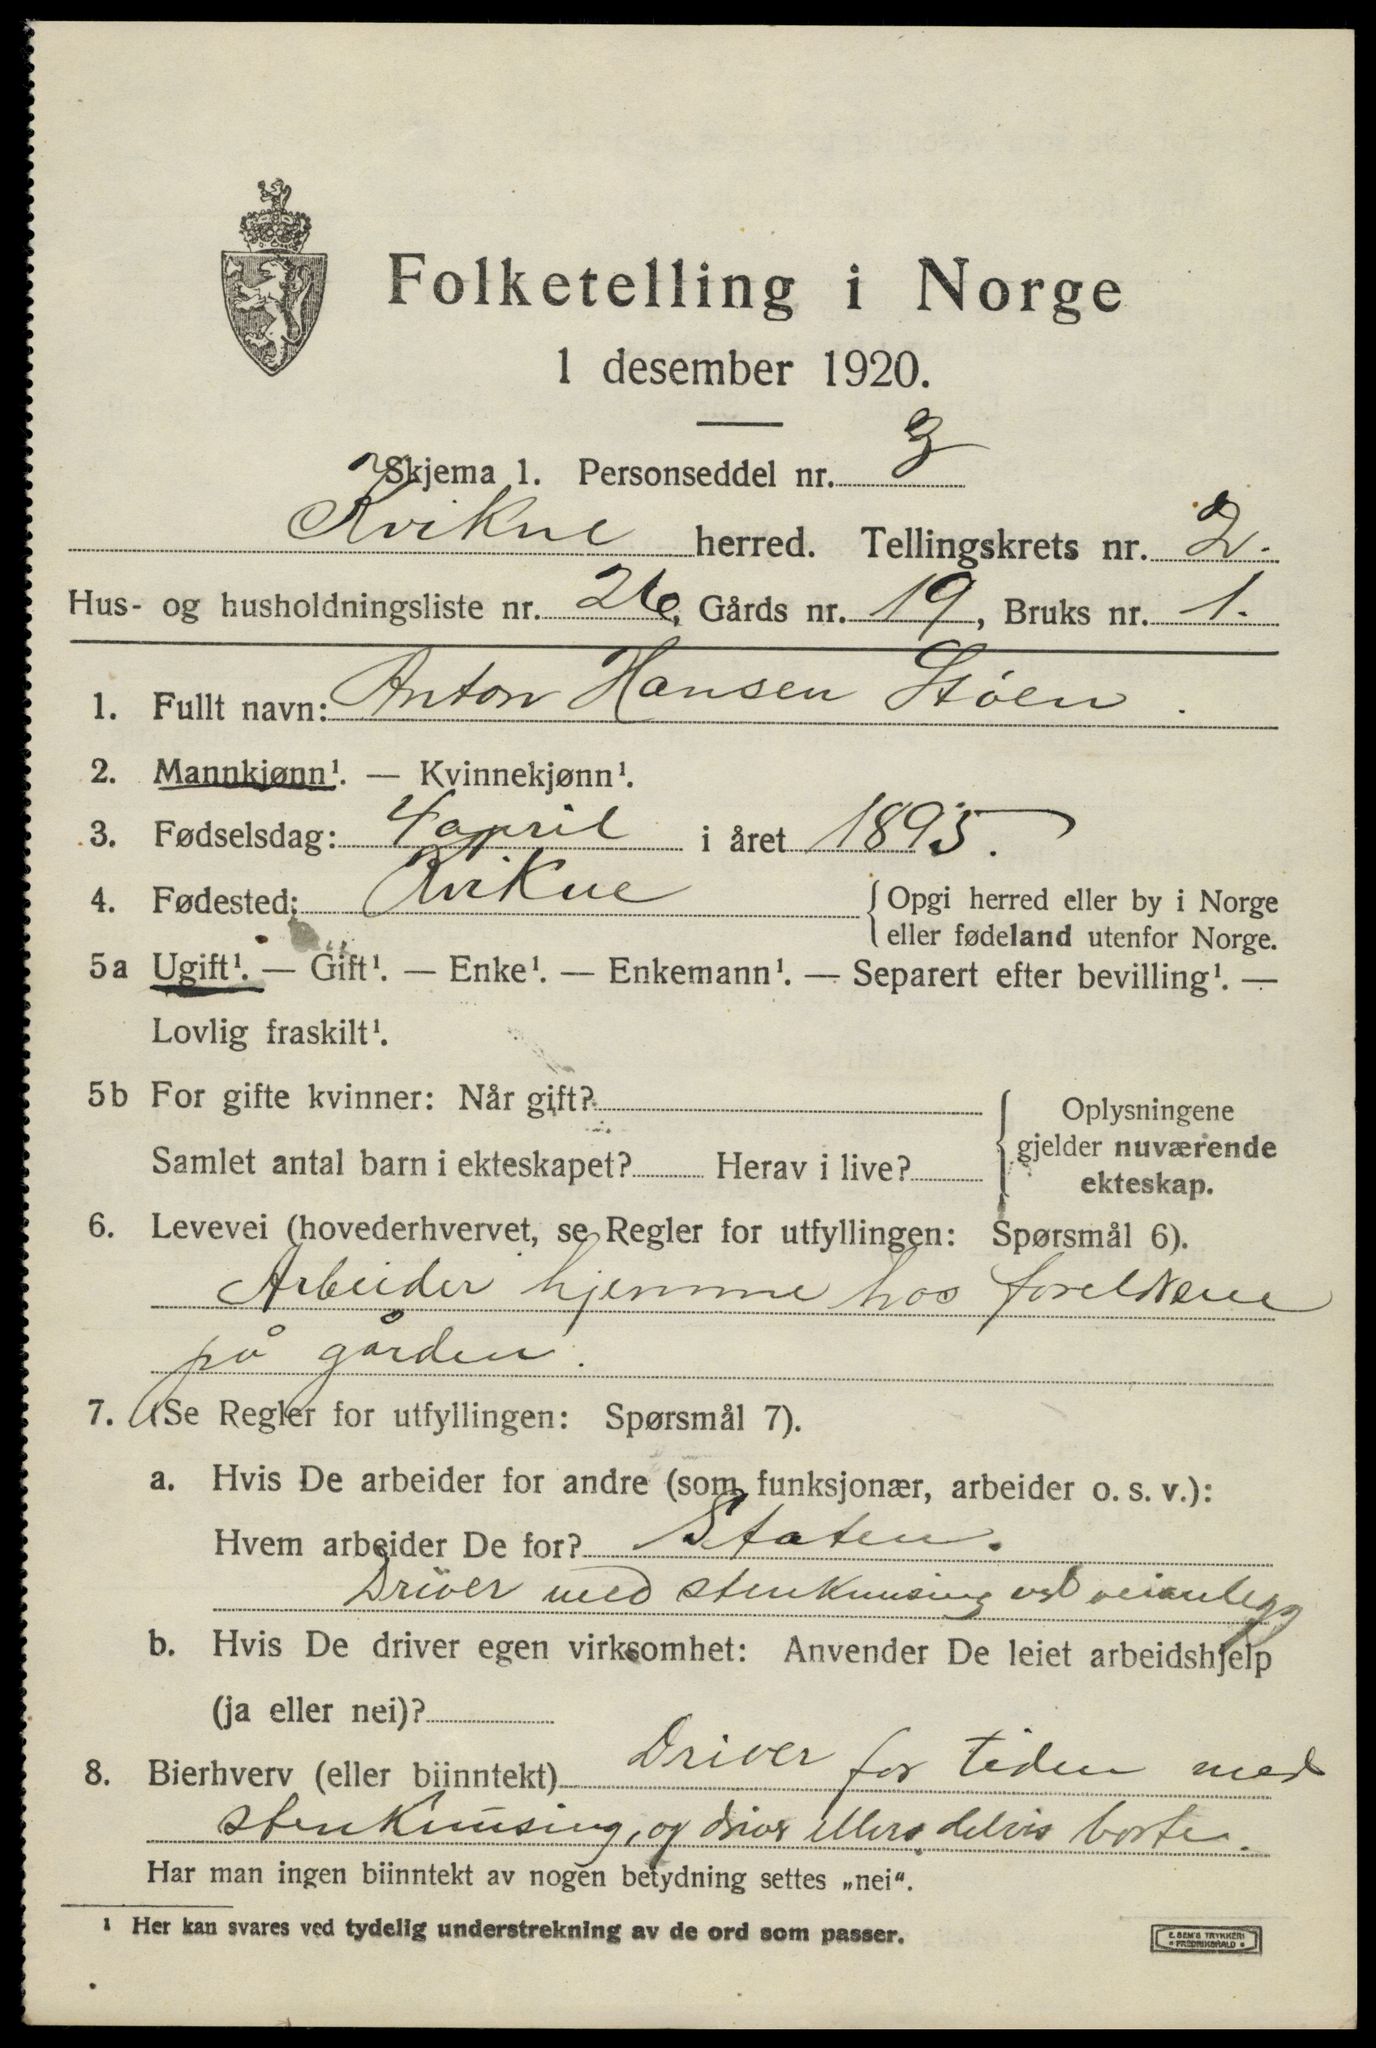 Folketelling i Norge
1 desember 1920.
Skjema 1. Personseddel nr. 3
Kvikne herred. Tellingskrets nr. 2.
Hus- og husholdningsliste nr. 26, Gårds nr. 19, Bruks nr. 1.
1. Fullt navn: Anton Hansen Støen.
2. Mannkjønn¹. — Kvinnekjønn¹.
3. Fødselsdag: 4 april i året 1895.
4. Fødested: Kvikne { Opgi herred eller by i Norge
eller fødeland utenfor Norge.
5a Ugift¹. — Gift¹. — Enke¹. — Enkemann¹. — Separert efter bevilling¹. —
Lovlig fraskilt¹.
5b For gifte kvinner: Når gift?
Samlet antal barn i ekteskapet? Herav i live?
Oplysningene
gjelder nuværende
ekteskap.
6. Levevei (hovederhvervet, se Regler for utfyllingen: Spørsmål 6).
Arbeider hjemme hos foreldrene
på gården.
7. (Se Regler for utfyllingen: Spørsmål 7).
a. Hvis De arbeider for andre (som funksjonær, arbeider o. s. v.):
Hvem arbeider De for? Staten.
Driver med stenknusing ved veianlegg
b. Hvis De driver egen virksomhet: Anvender De leiet arbeidshjelp
(ja eller nei)?
8. Bierhverv (eller biinntekt) Driver for tiden med
stenknusing, og driver ellers delvis borte.
Har man ingen biinntekt av nogen betydning settes „nei“.
¹ Her kan svares ved tydelig understrekning av de ord som passer.
E. SEM'S TRYKKERI
FREDRIKSHALD